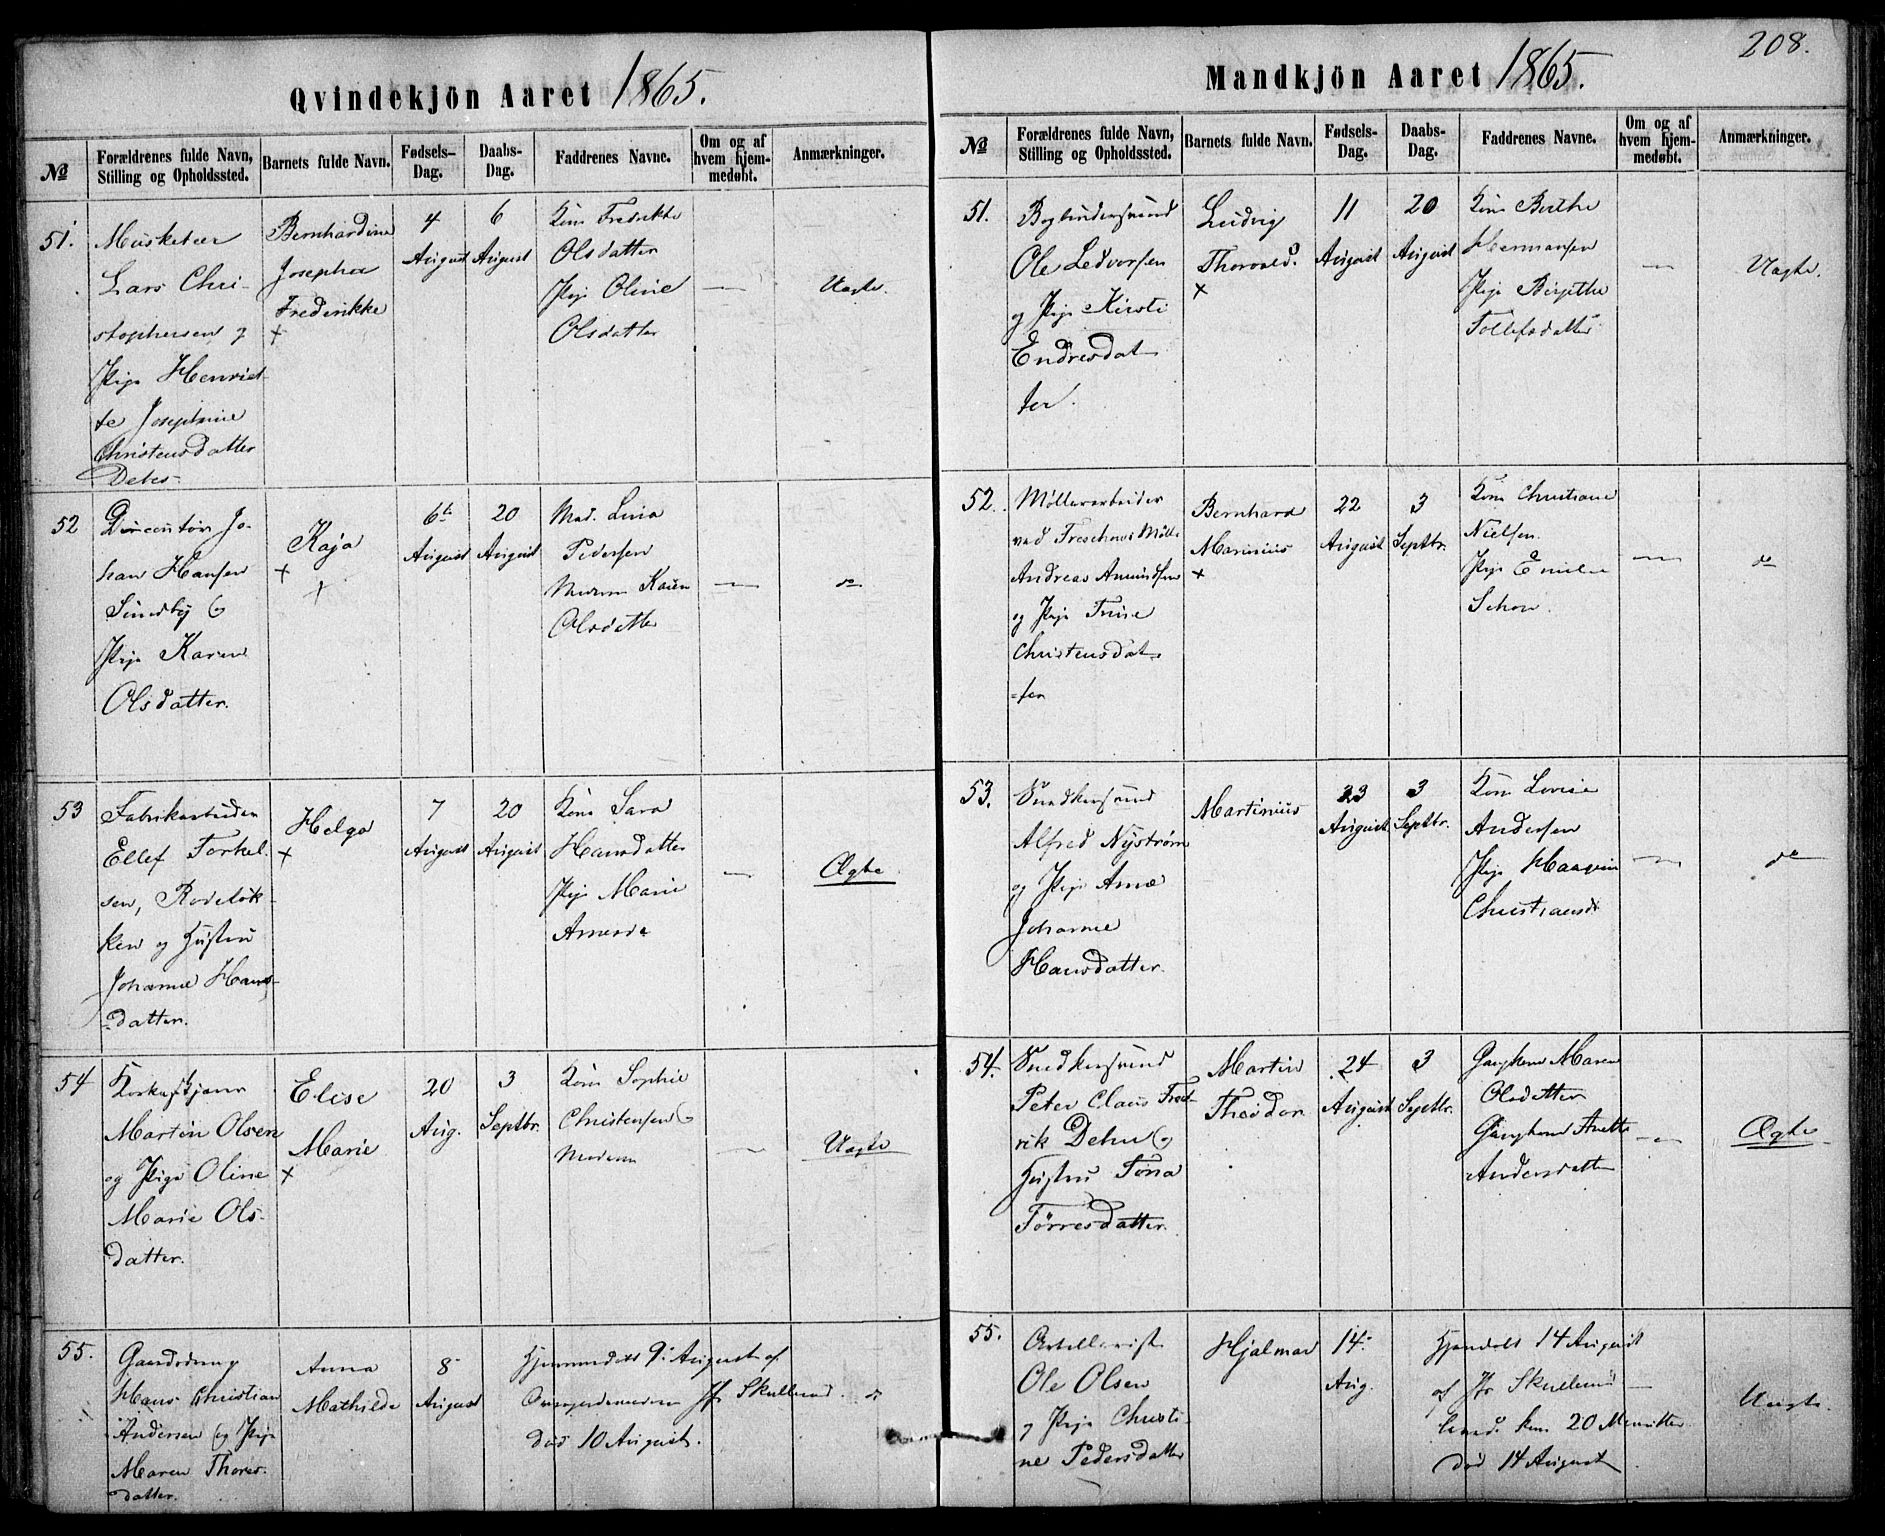 208.
Qvindekjön Aaret 1865.
№
Forældrenes fulde Navn,
Stilling og Opholdssted.
Barnets fulde Navn.
Fødsels-
Dag.
Daabs-
Dag.
Faddrenes Navne.
Om og af
hvem hjem-
medøbt.
Anmærkninger.
51.
Musketeer
Lars Chri-
stophersen og
Pige Henriet-
te Josephine
Christensdatter
Bernhardine
Josepha
Fredrikke
+
4
August
6
August
Kone Fredrikke
Olsdatter
Pige Oline
Olsdatter
—
Uægte.
52
Jo-
han Hansen
Sundby og
Pige Karen
Olsdatter.
Kaja
+
+
6te
August
20
August
Mad. Lina
Pedersen
Moderen Karen
Olsdatter
—
do
53
Fabrikarbeider
Ellef Torkel-
sen, Rodeløk-
ken og Hustru
Johanne Hans-
datter.
Helga
+
7
August
20
August
Kone Sara
Hansdatter
Pige Marie
—
Ægte
54
Martin Olsen
og Pige Oline
Marie Ols-
datter.
Elise
Marie
+
20
Aug.
3
Septbr.
Kone Sophie
Christensen og
Moderen
—
Uægte
55.
Gaardsdreng
Hans Christian
Andersen og Pige
Maren Thores-
datter.
Anna
Mathilde
8
August
Hjemmedøbt 9. August af
Jf. Skullerud.
død 10 August.
do
Mandkjön Aaret 1865.
№
Forældrenes fulde Navn,
Stilling og Opholdssted.
Barnets fulde Navn.
Fødsels-
Dag.
Daabs-
Dag.
Faddrenes Navne.
Om og af
hvem hjem-
medøbt.
Anmærkninger.
51.
Bogbindersvend
Ole Ledvorsen
og Pige Kirsti
Endresdat-
ter.
Ludvig
Thorvald.
+
11
August
20
August
Kone Berthe
Hermansen
Pige Birgithe
Tollefsdatter
—
Uægte.
52.
Møllerarbeider
ved Mølle
Andreas Amundsen
og Pige Trine
Christensdat-
ter
Bernhard
Marinius
+
22
August
3
Septbr.
Kone Christiane
Nielsen.
Pige Emilie
Schou.
—
do
53.
Snedkersvend
Alfred Nystrøm
og Pige Anne
Johanne
Hansdatter.
Martinius
23
August.
3
Septbr.
Kone Lovise
Andersen
Pige
—
do
54.
Snedkersvend
Peter Claus Fred-
rik Dehn og
Hustru Tona
Tørresdatter.
Martin
Theodor
24
August
3
Septbr.
Gangkone Maren
Olsdatter
Gangkone Anette
Andersdatter
—
Ægte
55.
Artillerist
Ole Olsen
og Pige Christi-
ne Pedersdatter
Hjalmar
14.
Aug.
Hjemdøbt 14 August
af Jfr Skullerud
kun 20 Minutter
død 14 August
—
Uægte.